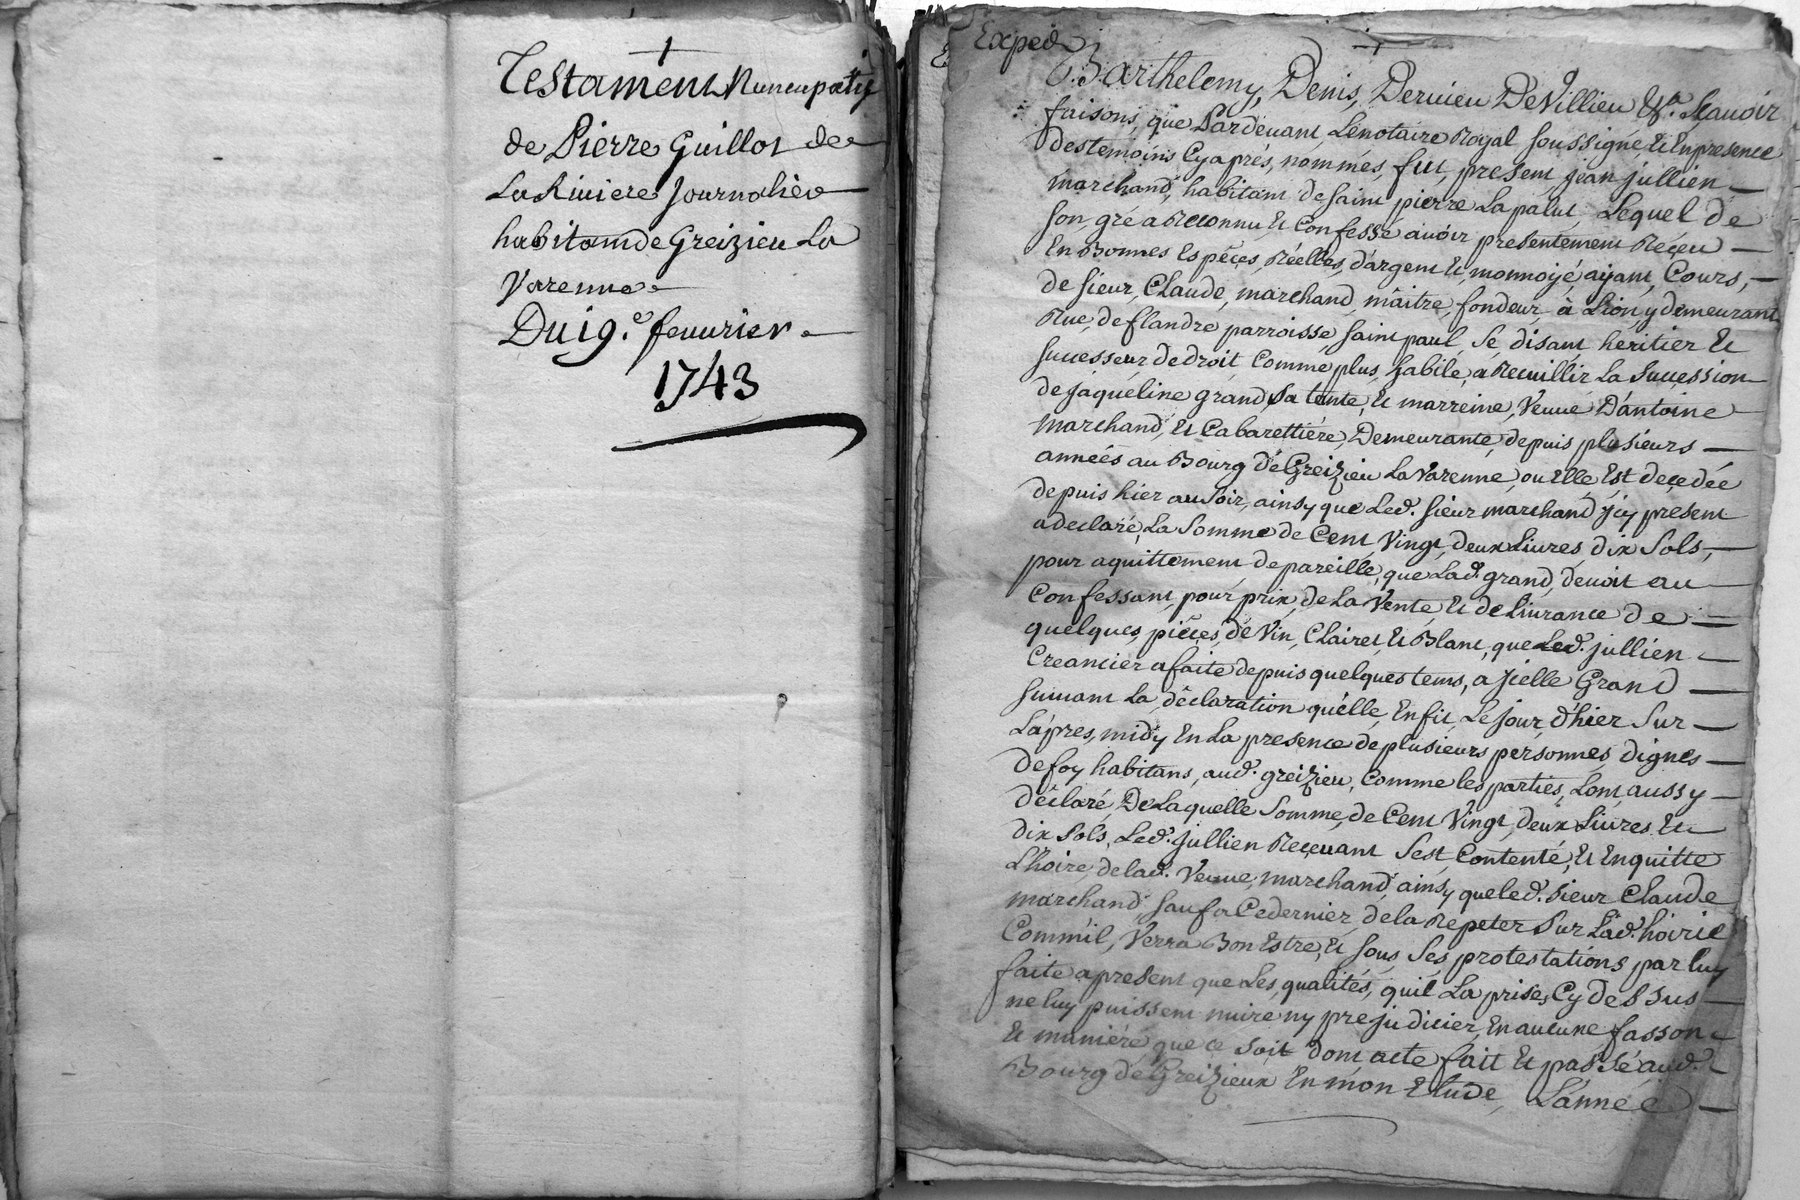 Testament Nuncupatif
de Pierre Guillot de
La Riviere Journalier
habitant de Greizieu La
Varenne
Du 19.e fevurier
1743
Exped
Barthelemy, Denis, Dervieu De Villieu &a. Scavoir
faisons, que Pardevant Le notaire Royal soussigné, Et En presence
des temoins Cyaprés, nommés, fut, present, jean jullien
marchand, habitant de saint pierre La palut Lequel de
son, gré a Reconnu, Et Confessé avoir presentement Reçeu
En Bonnes Espéçes, Réelles, d'argent Et, monnoyé, ayant, Cours,
de sieur, Claude, marchand, maitre, fondeur à Lion, y demeurant
Rue, de flandre parroisse, saint paul, se disant heritier Et
successeur de droit, Comme plus, habile, a Recuillir La Succession
de jaqueline grand sa tante, Et marreine, Veuve D'antoine
marchand, Et Cabarettiere, Demeurante, depuis plusieurs
années au Bourg de Greizieu La Varenne, ou Elle, Est deçedée
depuis hier au soir, ainsy que Led. sieur marchand jcy present
a declaré, La Somme de Cent Vingt, deux Livres, dix Sols,
pour aquittement de pareille, que Lad. grand, devoit au
Confessant, pour prix, de La Vente, Et de Livrance de
quelques, piéçes, de Vin, Clairet, Et Blanc, que Led. jullien
Creancier a faite depuis quelques tems, a jcelle Grand
suivant La, déclaration qu'elle, En fit, Le jour d'hier Sur
L'apres, midy En La presence de plusieurs personnes, dignes
de foy habitans, aud. greizieu, Comme les parties, L'ont, aussy
déclaré, De Laquelle Somme, de Cent Vingt, deux Livres, Et
dix Sols, Led. jullien Reçevant S'est, Contenté, Et En quitte
L'hoirie, de lad. Veuve, marchand, ainsy que led. sieur Claude
marchand sauf a Ce dernier, de la Repeter Sur Lad. hoirie
Comm'il, Verra Bon Estre, Et sous, Ses protestations, par luy
faite a present que Les, qualités, qu'il La prises, Cy dessus
ne luy puissent nuire ny prejudicier, En aucune fasson
Et maniere que ce soit dont acte fait Et passé aud.
Bourg de Greizieux En mon Etude, L'année